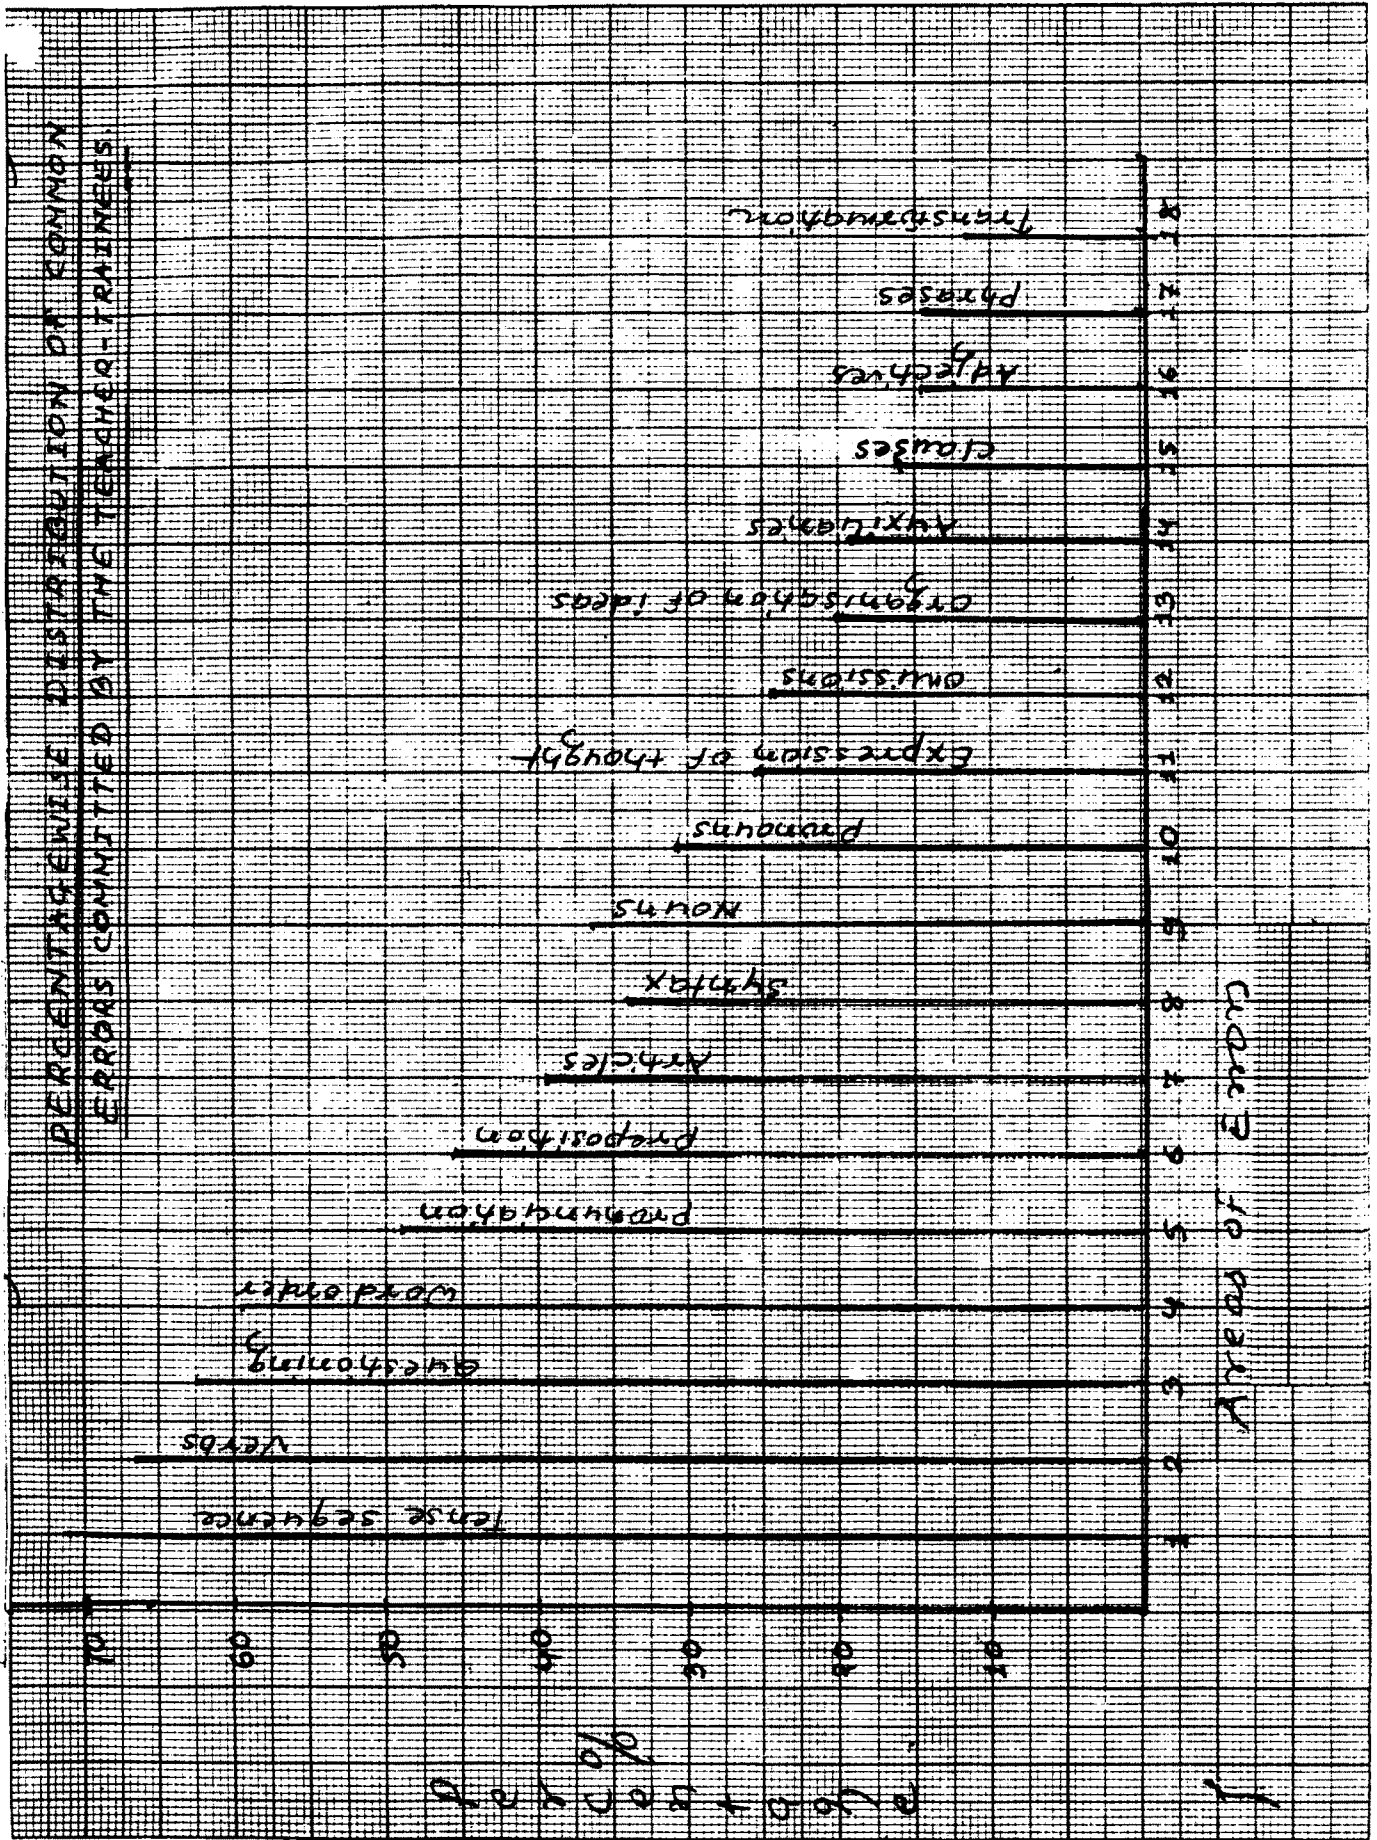 PERCENTAGEWISE DISTRIBUTION OF COMMON
ERRORS COMMITTED BY THE TEACHER-TRAINEES.
Percentage
%
70
60
50
40
30
20
10
Tense sequence
Verbs
Questioning
Word order
Pronunciation
Preposition
Articles
Syntax
Nouns
Pronouns
Expression of thought
Omissions
Organisation of ideas
Auxiliaries
Clauses
Adjectives
Phrases
Transformation
1 2 3 4 5 6 7 8 9 10 11 12 13 14 15 16 17 18
Areas of Error